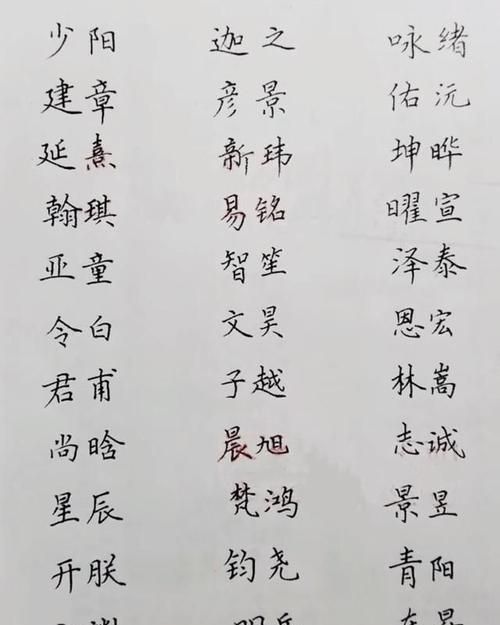 少阳 迦之 咏绪
建章 彦景 佑沅
延熹 新玮 坤晔
翰琪 易铭 曜宣
亚童 智笙 泽泰
令白 文昊 恩宏
君甫 子越 林嵩
尚晗 晨旭 志诚
星辰 梵鸿 景昱
开朕 钧尧 青阳